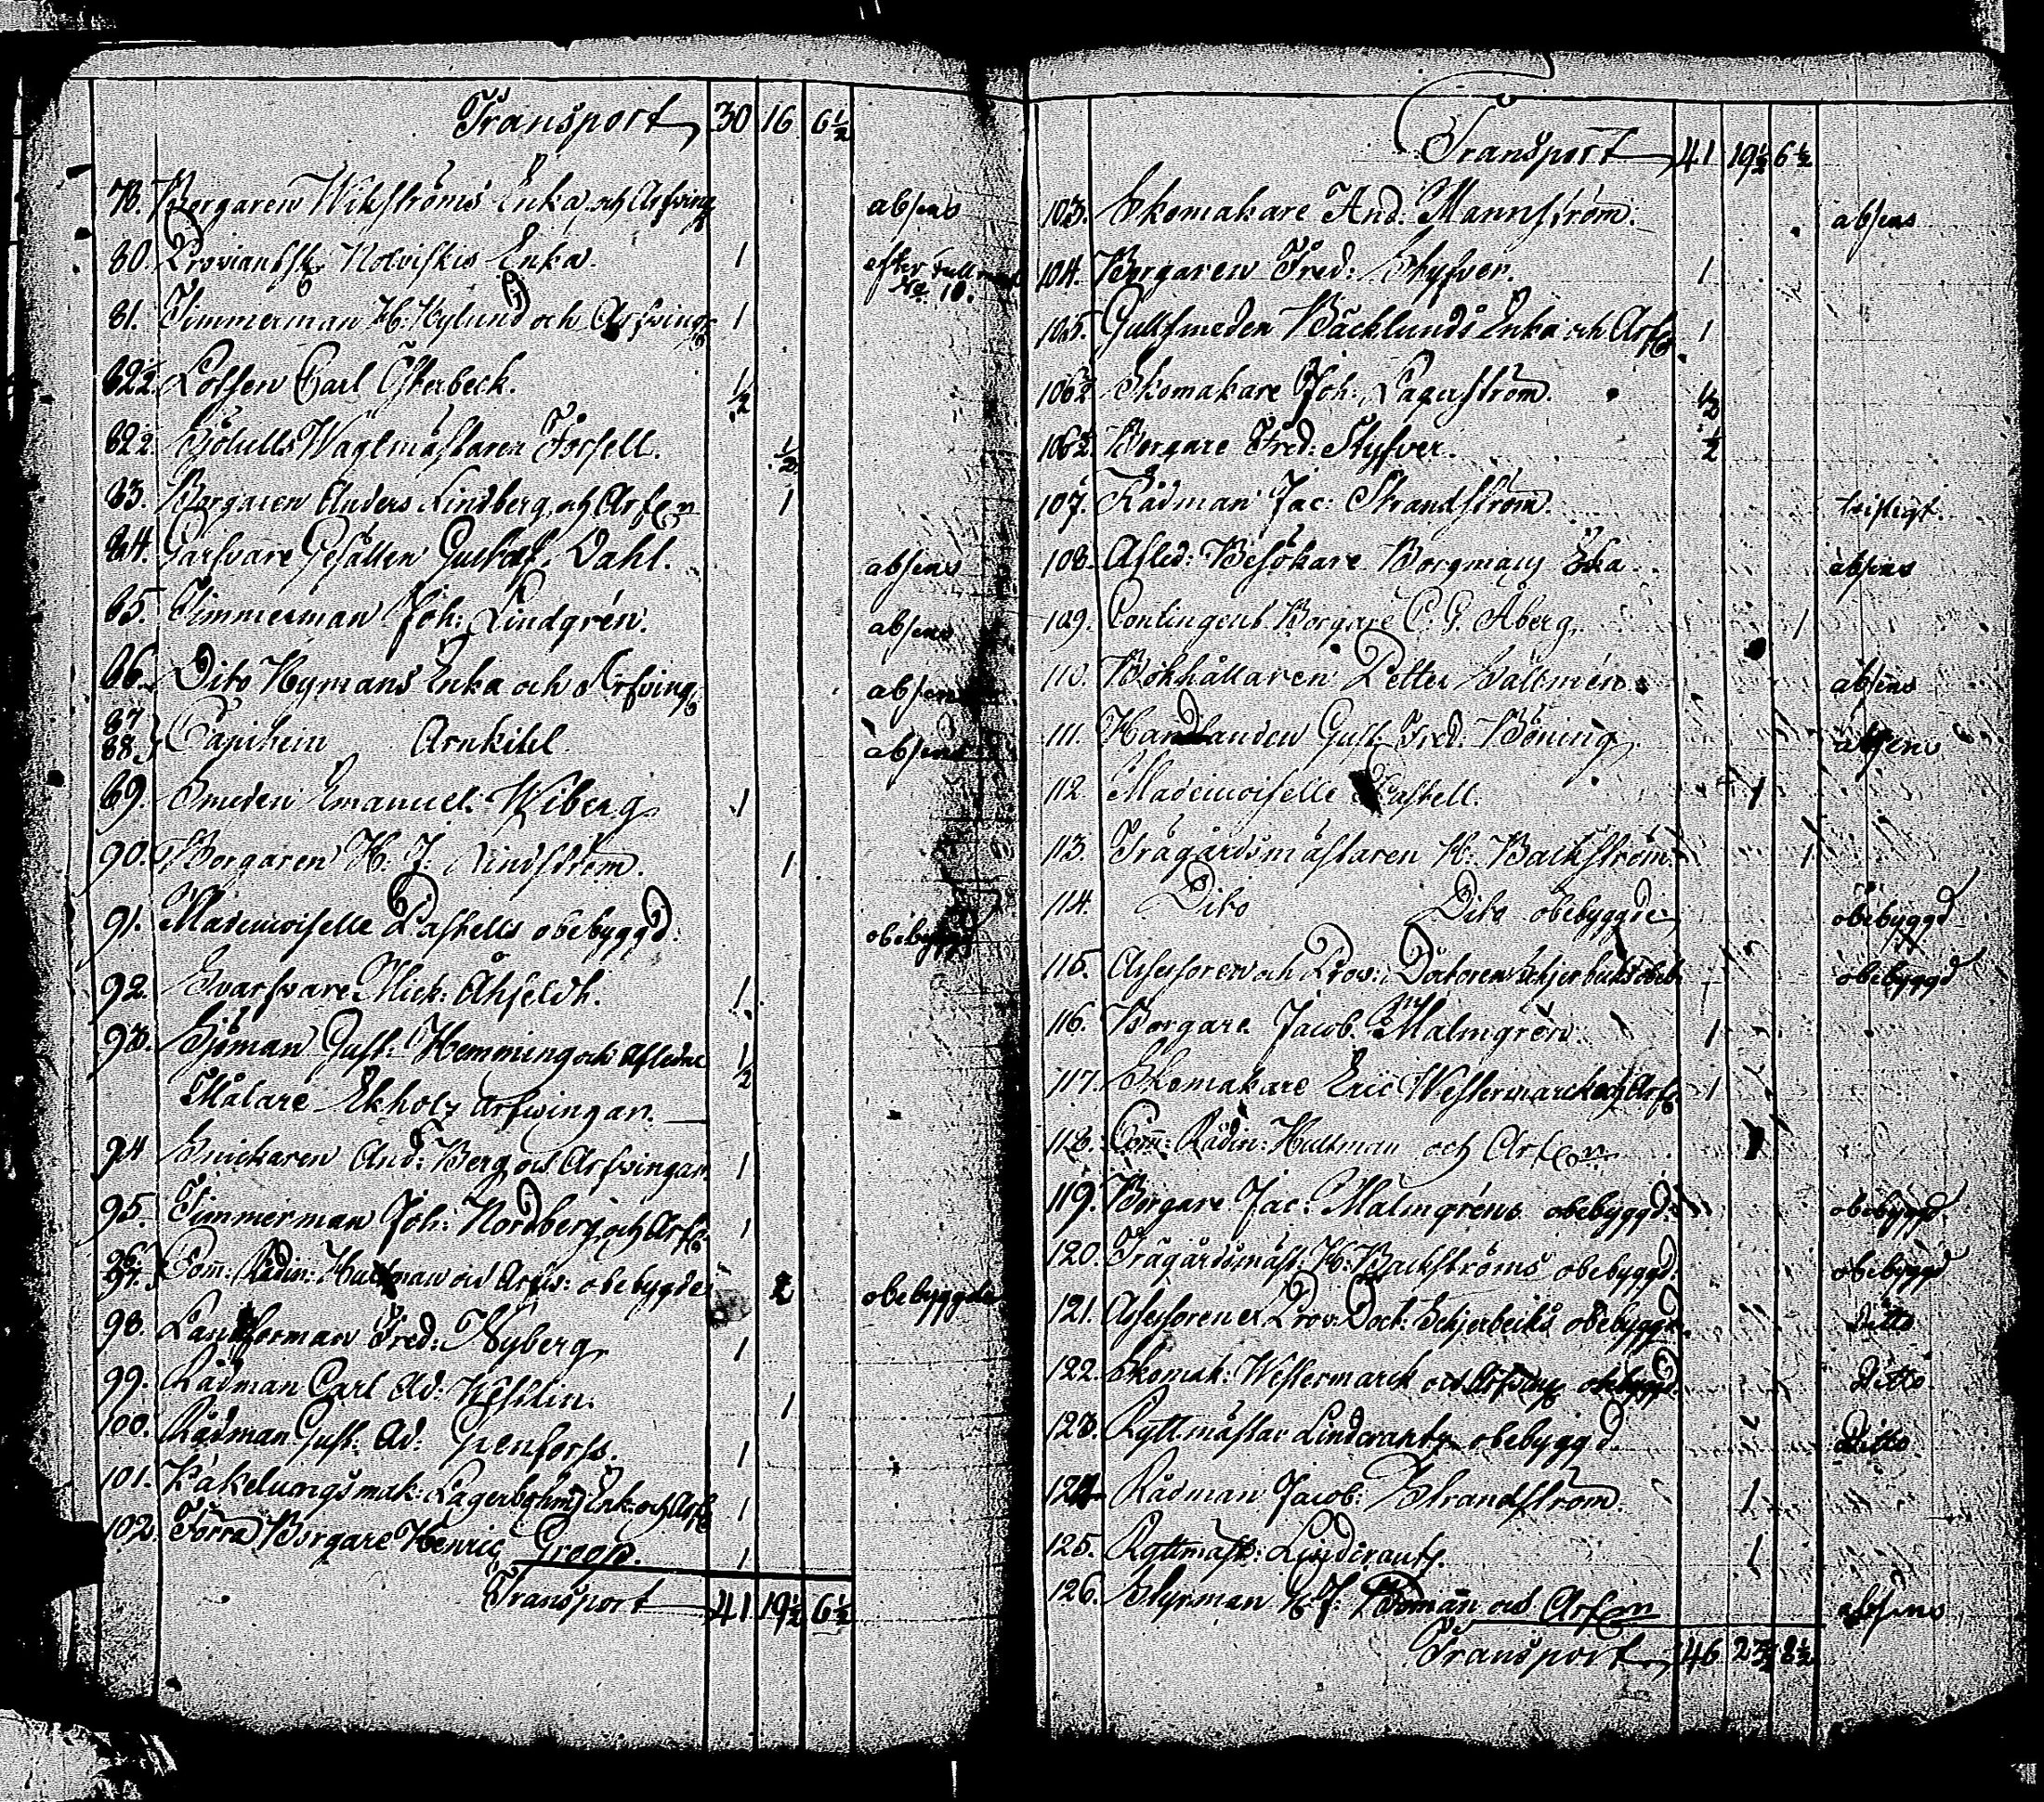 Transport 30 16 6½
78. Borgaren Wikströms Enka och Arfving absens
80. Proviantsk Notviskis Enka. 1 efter Tull No 10.
81. Timmerman H: Nylund och Arfving 1
82½. Lotsen Carl Österbeck. ½
82½. Sjötulls Wagtmästaren Forsell. ½
83. Borgaren Anders Lindberg och Arfen 1
84. Garfvare Gesällen Gustaf Dahl. absens
85. Timmerman Joh: Lindgrén. absens
86. Dito Nymans Enka och Arfving absens
87
88. Capitein Arnkihl absens
89. Smeden Emanuel Wiberg 1
90. Borgaren H. J. Lindström. 1
91. Mademoiselle Pastells obebyggd. obebyggd
92. Svarfvare Mick: Åhfeldt. 1
93. Sjöman Gust: Hemming och Afledne ½
Målare Ekholz Arfwingar.
94 Snickaren And: Berg och Arfwingar 1
95. Timmerman Joh: Nordberg och Arf 1
96.
97. Com: Rådin: Hultman och Arfw: obebygde 2 obebyggde
98. Fred: Nyberg 1
99. Rådman Carl Ad: Kesslin. 1
100. Rådman Gust: Ad: Grenforss. 1
101. Kakelungsmak: Enk: och Arf 1
102. Förra Borgare Henric Groop. 1
Transport 41 19½ 6½
Transport 41 19½ 6½
103. Skomakare And: Mannström. absens
104. Borgaren Fred: Styfver. 1
105. Gullsmeden Bäcklunds Enka och Arf 1
106½ Skomakare Joh: Lagerström. ½
106½ Borgare Fred: Styfver. ½
107. Rådman Jac: Strandström. tvistigt.
108. Afled: Besökare Borgmans absens
109. Contingent Borgare C. G. Åberg. 1
110. Bokhållaren Petter Sältmén absens
111. Handlanden Gust: Fred: Böning absens
112. Mademoiselle Pastell. 1
113. Trägårdsmästaren H: Backström. 1
114. Dito Dito obebyggde obebyggd
115. Assessoren och Prov: Doctoren obebyggd
116. Borgare Jacob Malmgren. 1
117. Skomakare Eric Westermarck och Arf 1
118. Com: Rådin: Hultman och Arfen 1
119. Borgare Jac: Malmgréns obebyggd. obebyggd
120. Trägårdsmäst: H: Backströms obebyggd. obebyggd
121. Assessoren et Prov: Doct: Schjerbecks obebyggd. ditto
122. Skomak: Westermarck och Arfving obebyggd. ditto
123. Ryttmästar Lindcrantz obebyggd. Ditto
124 Rådman Jacob: Strandström. 1
125. Ryttmäst: Lindcrantz. 1
126. Styrman H. J: Boman och Arfen absens
Transport 46 8½